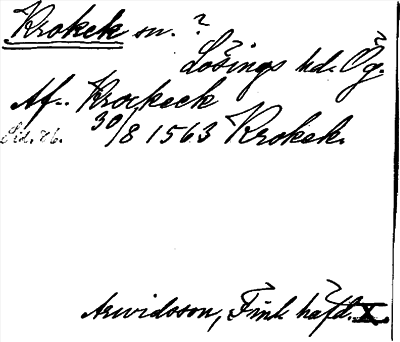 Krokek sn. ?
Lösings hd. Ög.
Af.. Krockeck
Sid. 76. 30/8 1563 Krokek.
Arwidsson, Finl. häfd. X.